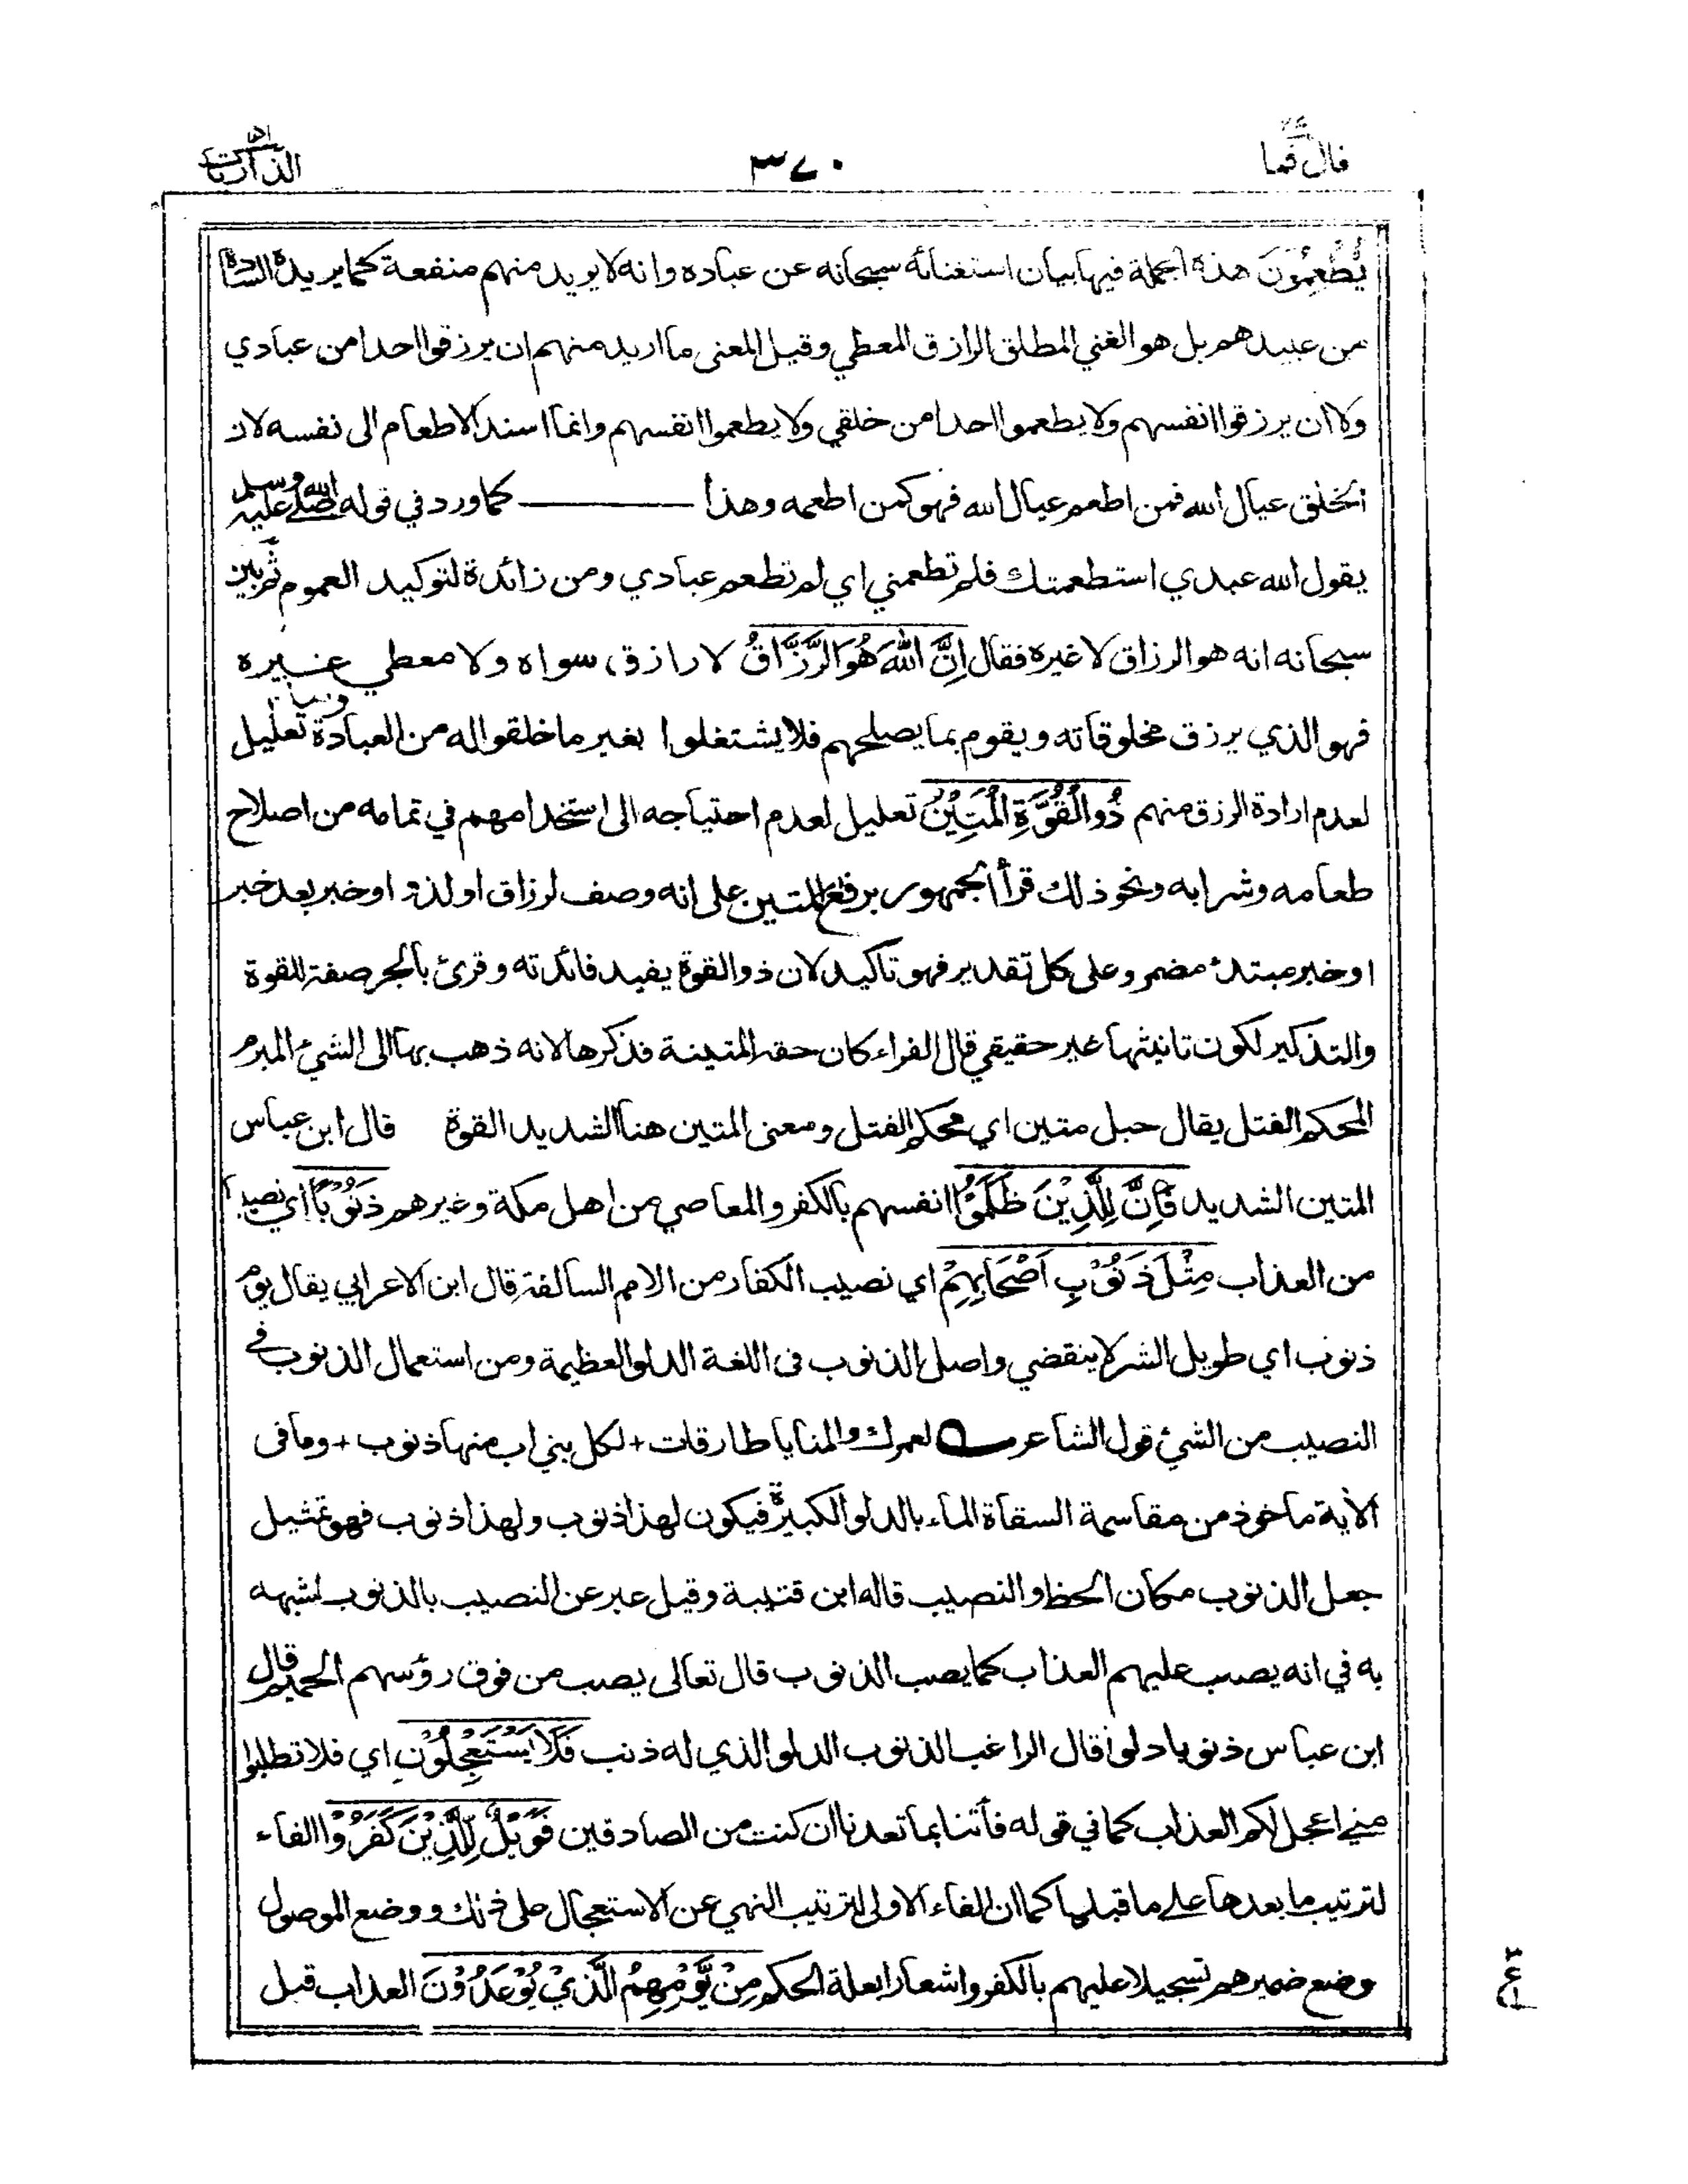 قال فما ٣٧٠ الذاريات
يُطْعِمُوْنَ هذه الجملة فيها بيان استغنائه سبحانه عن عباده وانه لا يريد منهم منفعة كما يريدة السادة
من عبيدهم بل هو الغني المطلق الرازق المعطي وقيل المعنى ما اريد منهم ان يرزقوا احدا من عبادي
ولا ان يرزقوا انفسهم ولا يطعموا احدا من خلقي ولا يطعموا انفسهم وانما اسند الاطعام الى نفسه لان
الخلق عيال الله فمن اطعم عيال الله فهو كمن اطعمه وهذا كما ورد في قوله صلى الله عليه وسلم
يقول الله عبدي استطعمتك فلم تطعمني اي لم تطعم عبادي ومن زائدة لتوكيد العموم ثم بين
سبحانه انه هو الرزاق لا غيره فقال اِنَّ اللّٰهَ هُوَ الرَّزَّاقُ لا رازق سواه ولا معطي غيره
فهو الذي يرزق مخلوقاته ويقوم بما يصلحهم فلا يشتغلوا بغير ما خلقوا له من العبادة تعليل
لعدم ارادة الرزق منهم ذُو الْقُوَّةِ الْمَتِيْنُ تعليل لعدم احتياجه الى استخدامهم في تمامه من اصلاح
طعامه وشرابه ونحو ذلك قرأ الجمهور برفع المتين على انه وصف لرزاق او لذو او خبر بعد خبر
او خبر مبتدئ مضمر وعلى كل تقدير فهو تاكيد لان ذو القوة يفيد فائدته وقرئ بالجر صفة للقوة
والتذكير لكون تانيثها غير حقيقي قال الفراء كان حقه المتينة فذكرها لانه ذهب بها الى الشيئ المبرم
المحكم الفتل يقال حبل متين اي محكم الفتل ومعنى المتين هنا الشديد القوة قال ابن عباس
المتين الشديد فَاِنَّ لِلَّذِيْنَ ظَلَمُوْا انفسهم بالكفر والمعاصي من اهل مكة وغيرهم ذَنُوْبًا اي نصيبا
من العذاب مِثْلَ ذَنُوْبِ اَصْحَابِهِمْ اي نصيب الكفار من الامم السالفة قال ابن الاعرابي يقال يوم
ذنوب اي طويل الشر لا ينقضي واصل الذنوب في اللغة الدلو العظيمة ومن استعمال الذنوب في
النصيب من الشيئ قول الشاعر لعمرك والمنايا طارقات + لكل بني اب منها ذنوب + وما في
الآية ماخوذ من مقاسمة السقاة الماء بالدلو الكبيرة فيكون لهذا ذنوب ولهذا ذنوب فهو تمثيل
جعل الذنوب مكان الحظ والنصيب قاله ابن قتيبة وقيل عبر عن النصيب بالذنوب لشبهه
به في انه يصب عليهم العذاب كما يصب الذنوب قال تعالى يصب من فوق رؤسهم الحميم قال
ابن عباس ذنوبا دلوا قال الراغب الذنوب الدلو الذي له ذنب فَلَا يَسْتَعْجِلُوْنِ اي فلا تطلبوا
مني اعجل لكم العذاب كما في قوله فأتنا بما تعدنا ان كنت من الصادقين فَوَيْلٌ لِّلَّذِيْنَ كَفَرُوْا الفاء
لترتيب ما بعدها على ما قبلها كما ان الفاء الاولى لترتيب النهي عن الاستعجال على ذلك ووضع الموصول
وضع ضميرهم تسجيلا عليهم بالكفر واشعارا بعلة الحكم مِنْ يَّوْمِهِمُ الَّذِيْ يُوْعَدُوْنَ العذاب قبل